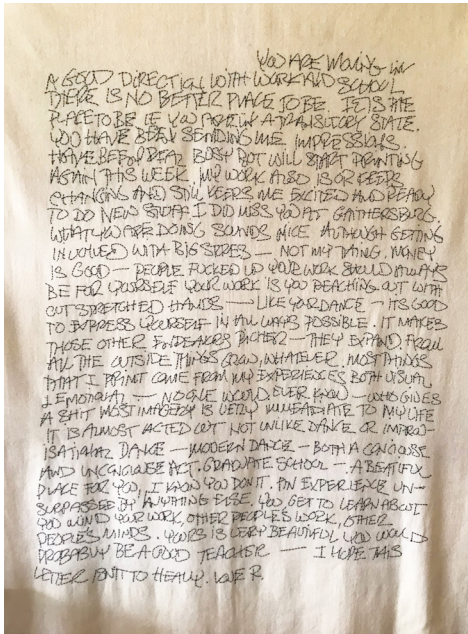 YOU ARE MOVING IN
A GOOD DIRECTION WITH WORK AND SCHOOL
THERE IS NO BETTER PLACE TO BE. IT IS THE
PLACE TO BE IF YOU ARE IN A TRANSITORY STATE.
YOU HAVE BEEN SENDING ME IMPRESSIONS.
HAVE BEEN REAL BUSY BUT WILL START PRINTING
AGAIN THIS WEEK. MY WORK ALSO IS OR KEEPS
CHANGING AND STILL KEEPS ME EXCITED AND READY
TO DO NEW STUFF. I DID MISS YOU AT GATHERSBURG.
WHAT YOU ARE DOING SOUNDS NICE ALTHOUGH GETTING
INVOLVED WITH BIG STORES — NOT MY THING. MONEY
IS GOOD — PEOPLE FUCKED UP YOUR WORK SHOULD ALWAYS
BE FOR YOURSELF YOUR WORK IS YOU REACHING OUT WITH
OUT STRETCHED HANDS — LIKE YOUR DANCE — ITS GOOD
TO EXPRESS YOURSELF IN ALL WAYS POSSIBLE. IT MAKES
THOSE OTHER ENDEAVORS RICHER — THEY EXPAND. FROM
ALL THE OUTSIDE THINGS GOING, WHATEVER. MOST THINGS
THAT I PRINT COME FROM MY EXPERIENCES BOTH VISUAL
& EMOTIONAL — NO ONE WOULD EVER KNOW — WHO GIVES
A SHIT MOST IMAGERY IS VERY IMMEADIATE TO MY LIFE
IT IS ALMOST ACTED OUT NOT UNLIKE DANCE OR IMPROV-
ISATIONAL DANCE — MODERN DANCE — BOTH A CONCIOUSE
AND UNCONCIOUSE ACT. GRADUATE SCHOOL — A BEATIFUL
PLACE FOR YOU, I KNOW YOU DON IT. AN EXPERIENCE UN-
SURPASSED BY ANYTHING ELSE, YOU GET TO LEARN ABOUT
YOU MIND YOUR WORK, OTHER PEOPLE'S WORK, OTHER
PEOPLE'S MINDS. YOURS IS VERY BEAUTIFUL YOU WOULD
PROBABLY BE A GOOD TEACHER — I HOPE THIS
LETTER ISN'T TO HEAVY. LOVE R